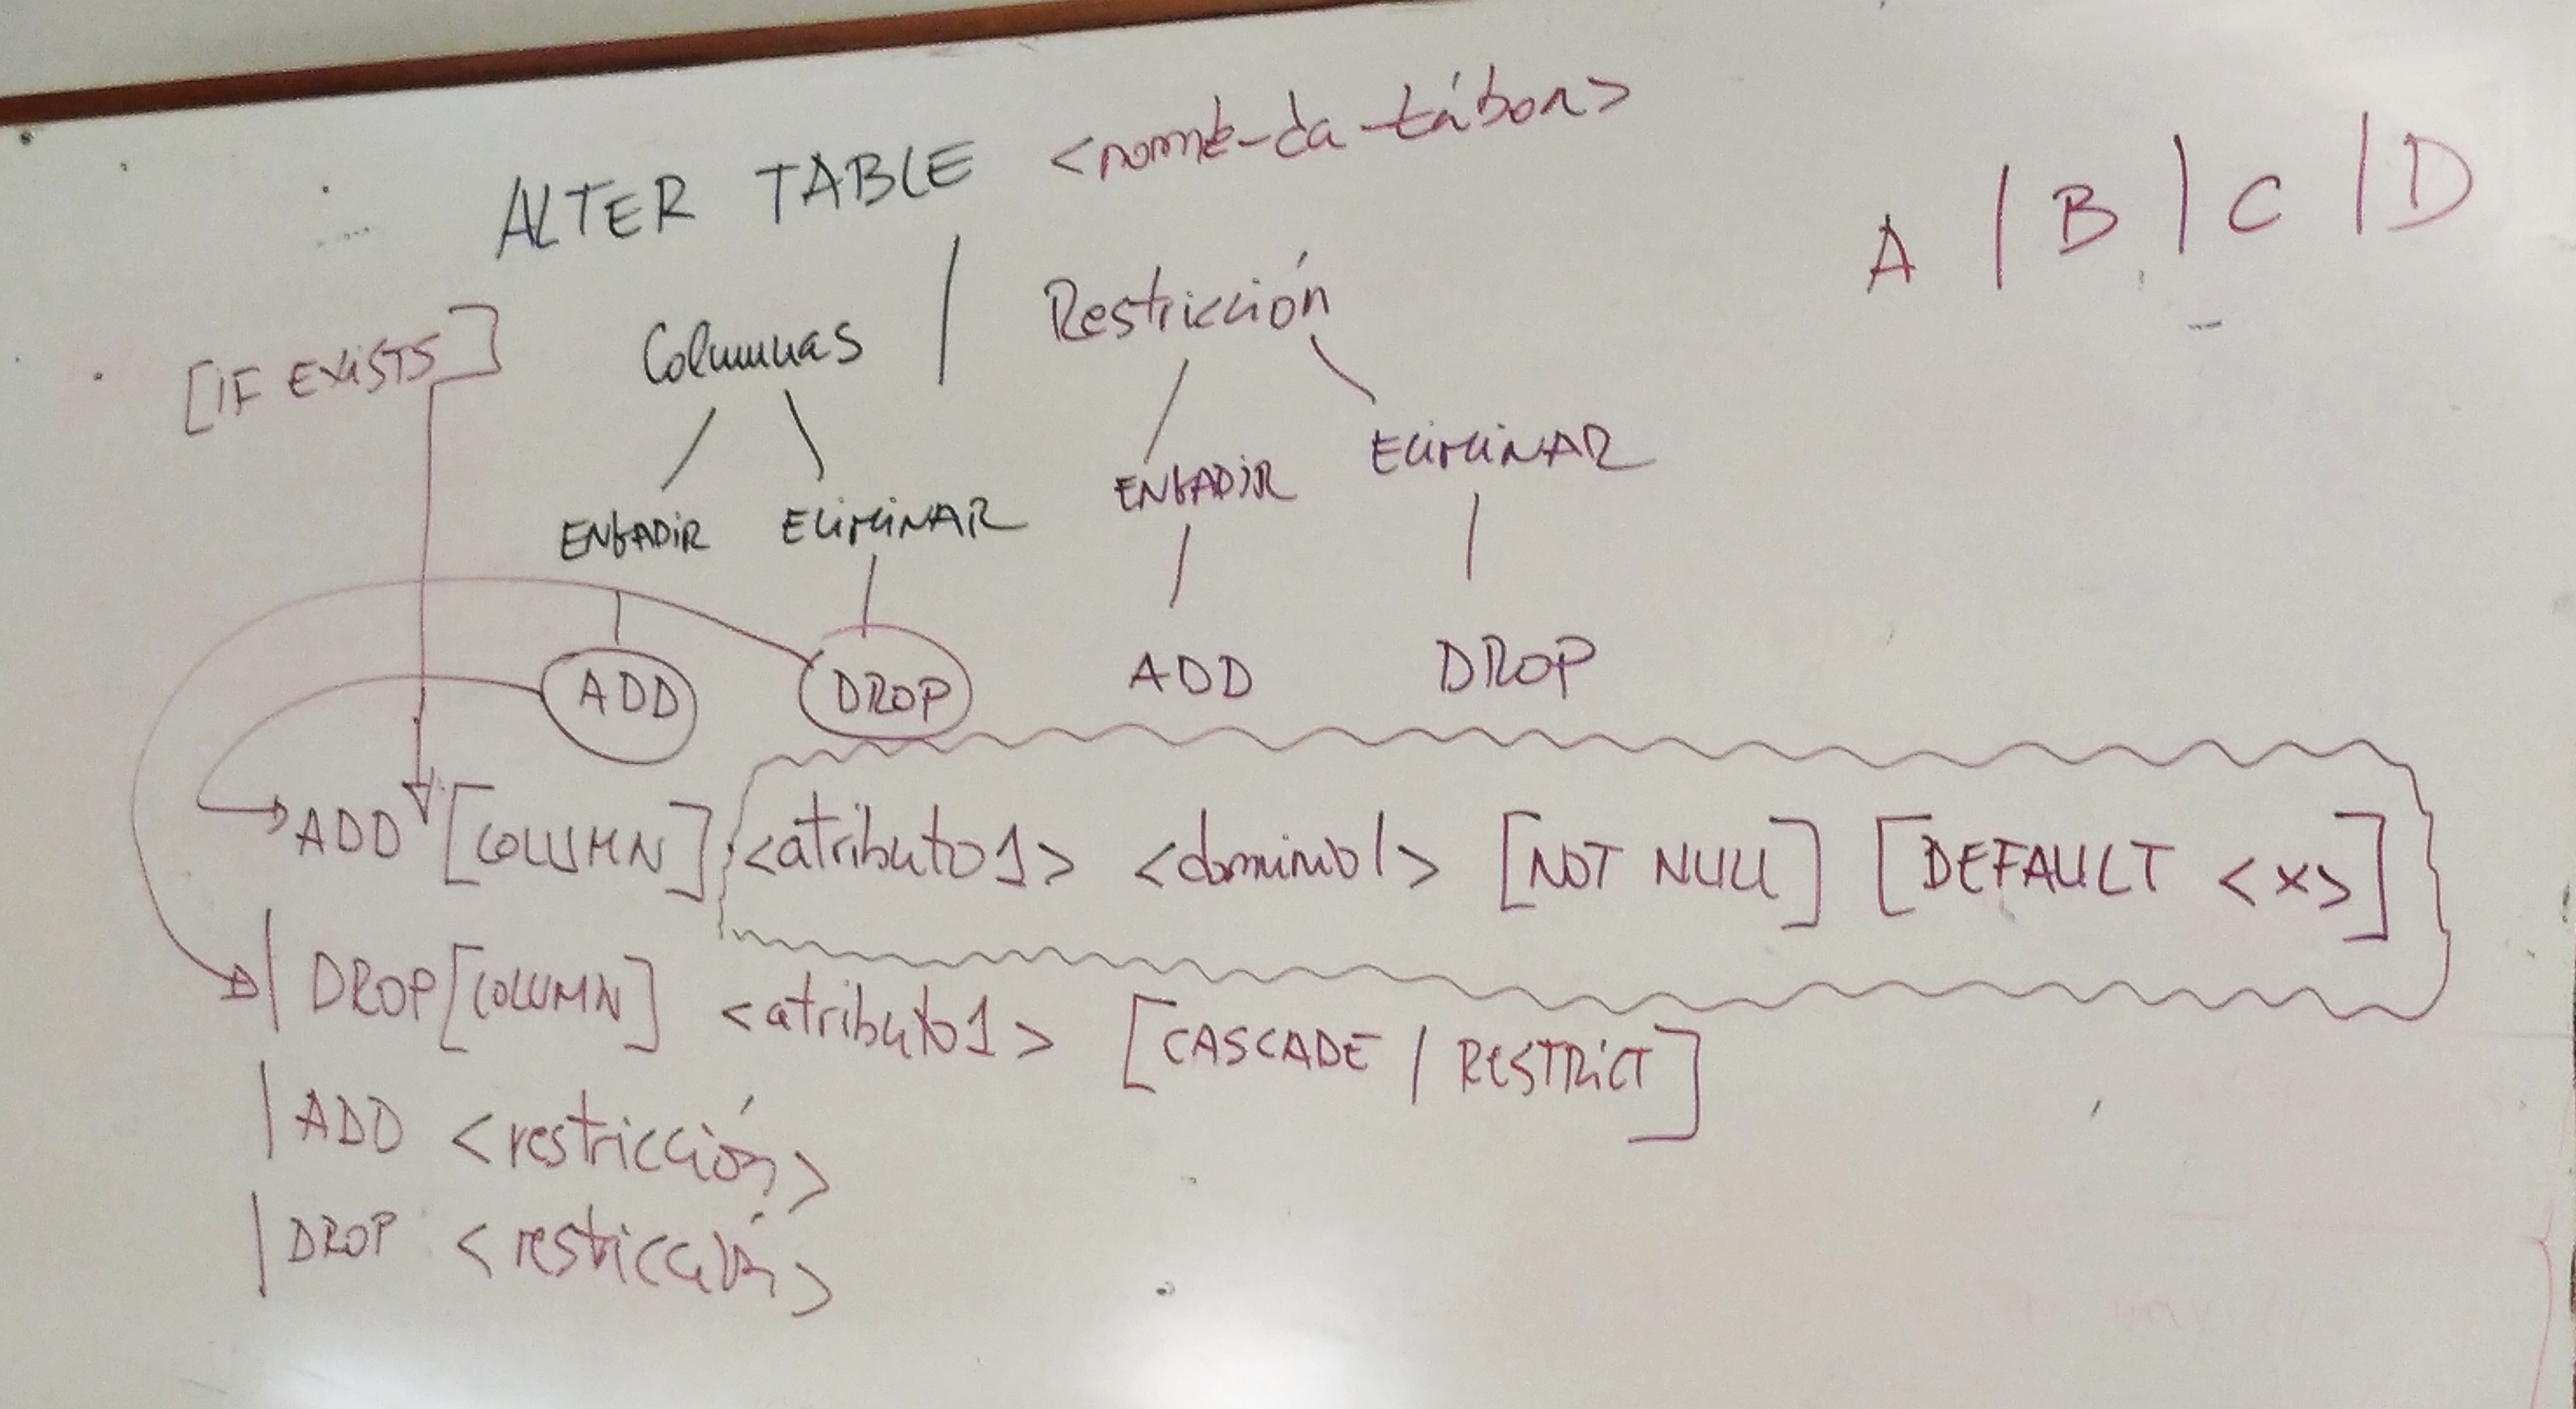 ALTER TABLE <nome-da-táboa>
A | B | C | D
[IF EXISTS]
Columnas | Restricción
ENGADIR ELIMINAR ENGADIR ELIMINAR
ADD DROP ADD DROP
ADD [COLUMN] <atributo1> <dominio1> [NOT NULL] [DEFAULT <x>]
| DROP [COLUMN] <atributo1> [CASCADE / RESTRICT]
| ADD <restricción>
| DROP <restricción>